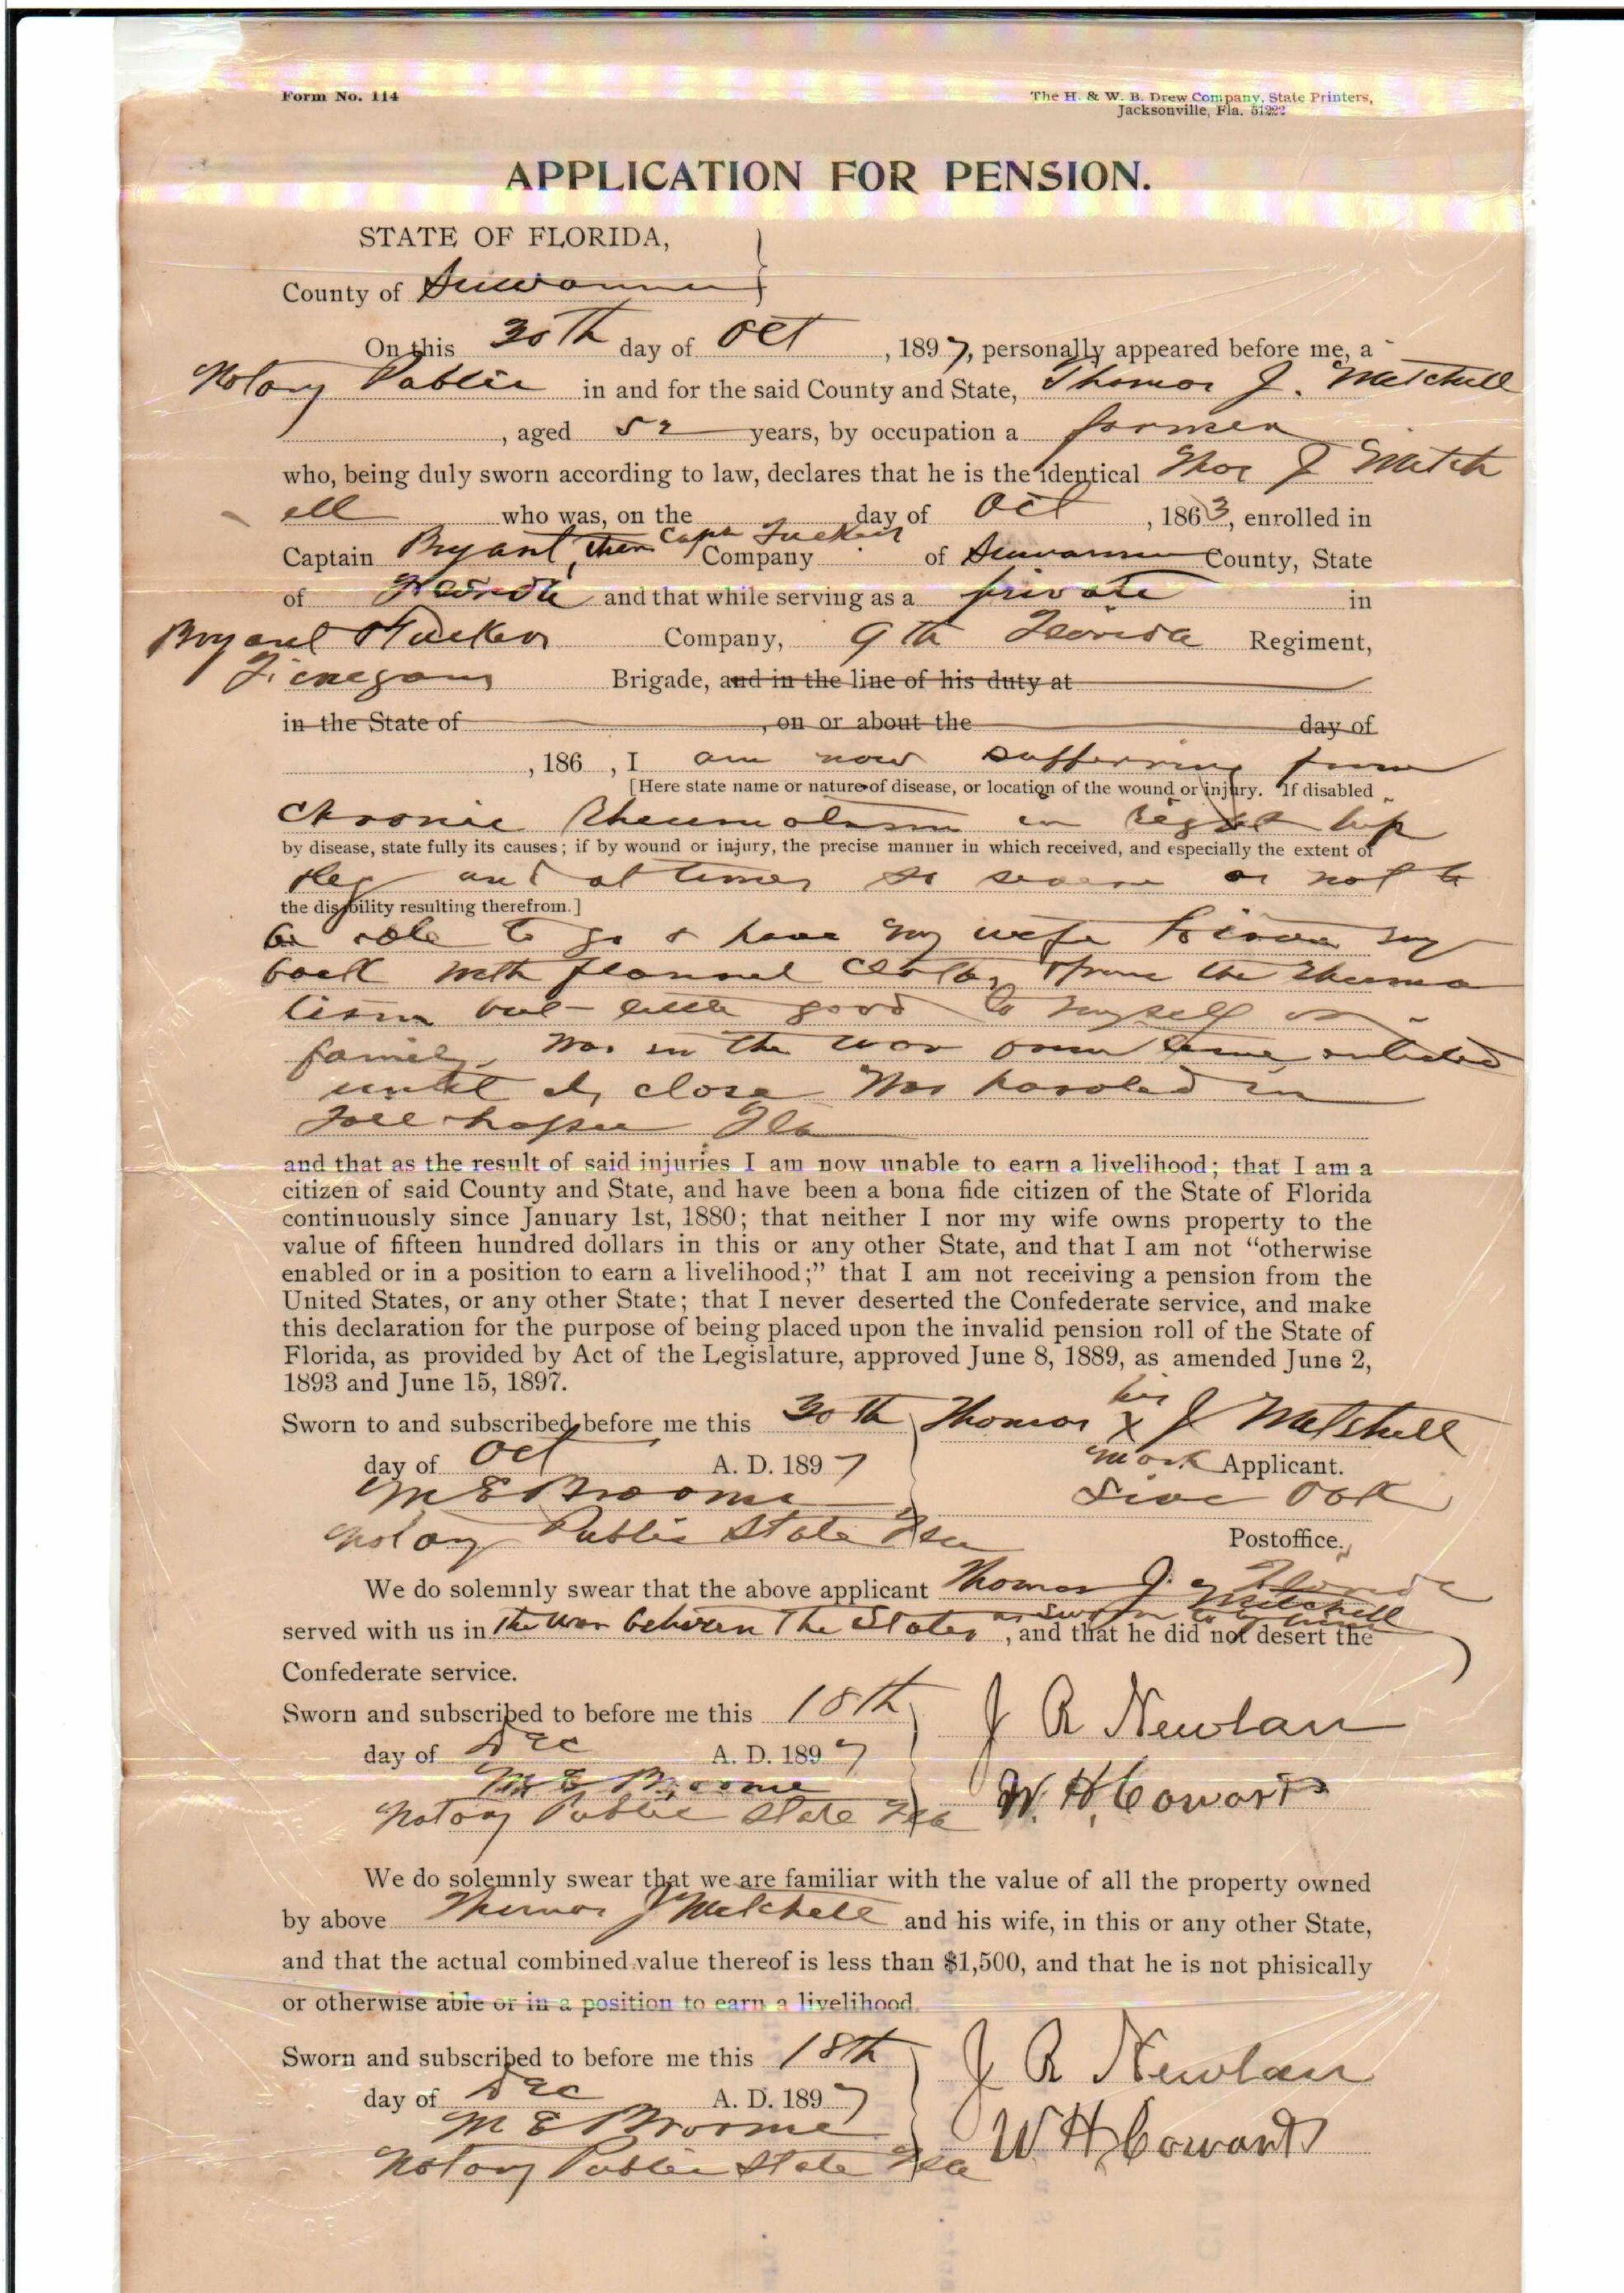 Form No. 114
The H. & W. B. Drew Company, State Printers,
Jacksonville, Fla. 51222
APPLICATION FOR PENSION.
STATE OF FLORIDA,
County of Suwannee
On this 30th day of Oct, 1897, personally appeared before me, a
Notary Public in and for the said County and State, Thomas J. Mitchell
, aged 52 years, by occupation a farmer
who, being duly sworn according to law, declares that he is the identical Thos J Mitch
ell who was, on the day of Oct, 1863, enrolled in
Captain Bryant, then Capt Tucker Company of Suwannee County, State
of Florida and that while serving as a private in
Bryant & Tucker Company, 9th Florida Regiment,
Finegans Brigade, and in the line of his duty at
in the State of , on or about the day of
, 186 , I am now suffering from
[Here state name or nature of disease, or location of the wound or injury. If disabled
chronic Rheumatism in right hip
by disease, state fully its causes; if by wound or injury, the precise manner in which received, and especially the extent of
& leg and at times so severe as not to
the disability resulting therefrom.]
be able to go & have my wife to iron my
back with flannel cloth, from the rheuma
tism but little good to myself or
family, Was in the war from time enlisted
until its close Was paroled in
Tallahassee Fla
and that as the result of said injuries I am now unable to earn a livelihood; that I am a
citizen of said County and State, and have been a bona fide citizen of the State of Florida
continuously since January 1st, 1880; that neither I nor my wife owns property to the
value of fifteen hundred dollars in this or any other State, and that I am not “otherwise
enabled or in a position to earn a livelihood;” that I am not receiving a pension from the
United States, or any other State; that I never deserted the Confederate service, and make
this declaration for the purpose of being placed upon the invalid pension roll of the State of
Florida, as provided by Act of the Legislature, approved June 8, 1889, as amended June 2,
1893 and June 15, 1897.
Sworn to and subscribed before me this 30th Thomas his x J Mitchell
day of Oct A. D. 1897 mark Applicant.
M E Broome Live Oak
Notary Public State Fla Postoffice.
We do solemnly swear that the above applicant Thomas J. Mitchell
served with us in the War between the States as sworn to by him, and that he did not desert the
Confederate service.
Sworn and subscribed to before me this 18th J R Newlan
day of Dec A. D. 1897
M E Broome W. H. Cowart
Notary Public State Fla
We do solemnly swear that we are familiar with the value of all the property owned
by above Thomas J Mitchell and his wife, in this or any other State,
and that the actual combined value thereof is less than $1,500, and that he is not phisically
or otherwise able or in a position to earn a livelihood.
Sworn and subscribed to before me this 18th J R Newlan
day of Dec A. D. 1897
M E Broome W H Cowart
Notary Public State Fla